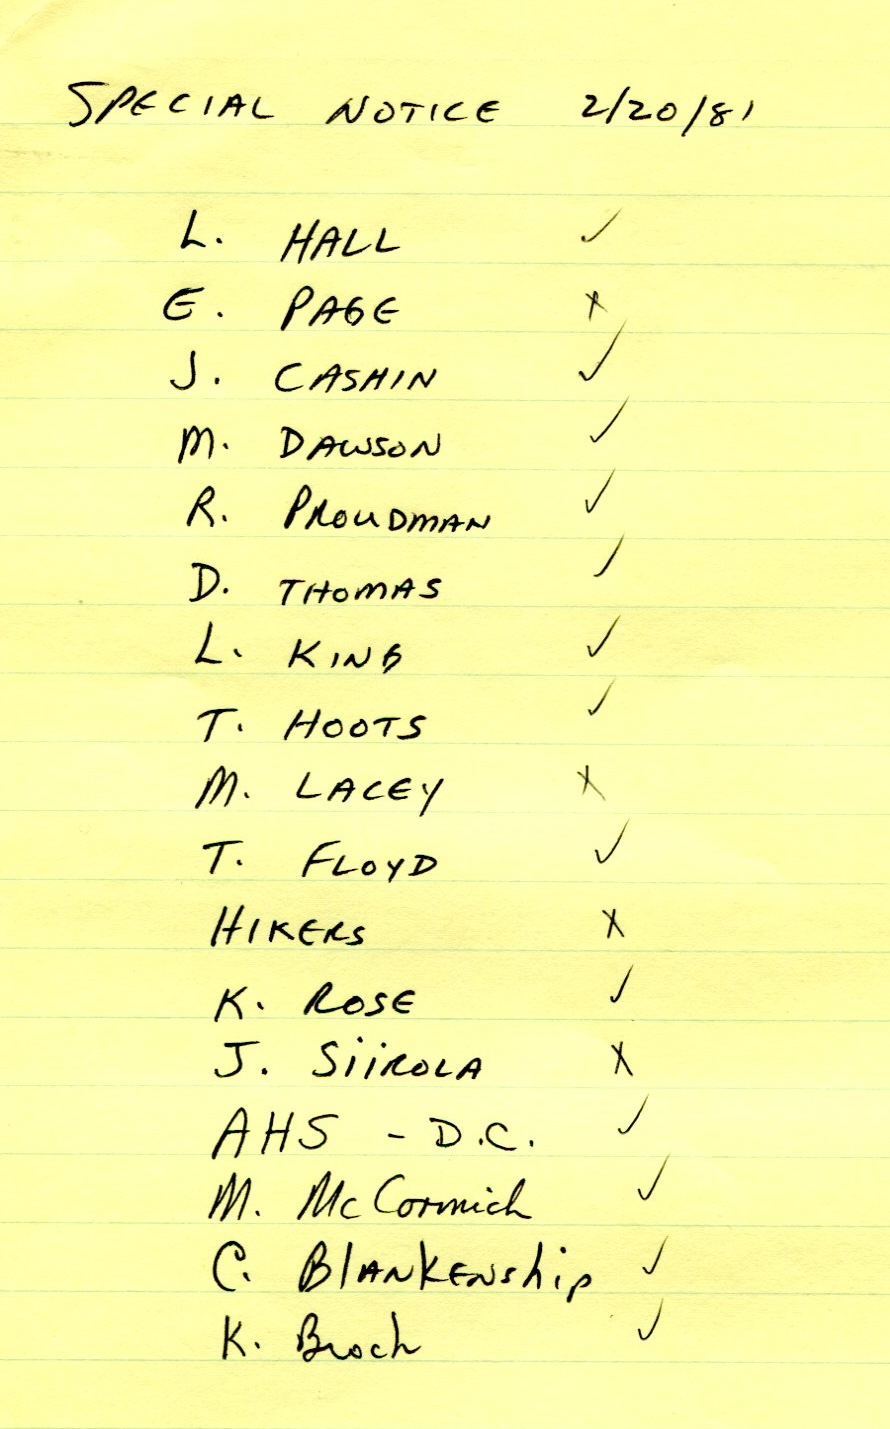 SPECIAL NOTICE 2/20/81
L. HALL ✓
E. PAGE x
J. CASHIN ✓
M. DAWSON ✓
R. PROUDMAN ✓
D. THOMAS ✓
L. KING ✓
T. HOOTS ✓
M. LACEY x
T. FLOYD ✓
HIKERS x
K. ROSE ✓
J. SiiROLA x
AHS - D.C. ✓
M. McCormich ✓
C. BlANKENship ✓
K. Broch ✓